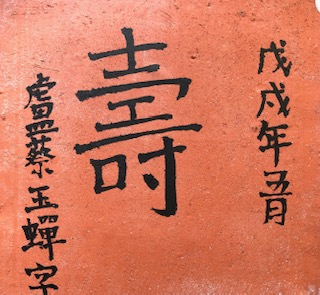 戊戌年五月
壽
盧蔡玉蟬字